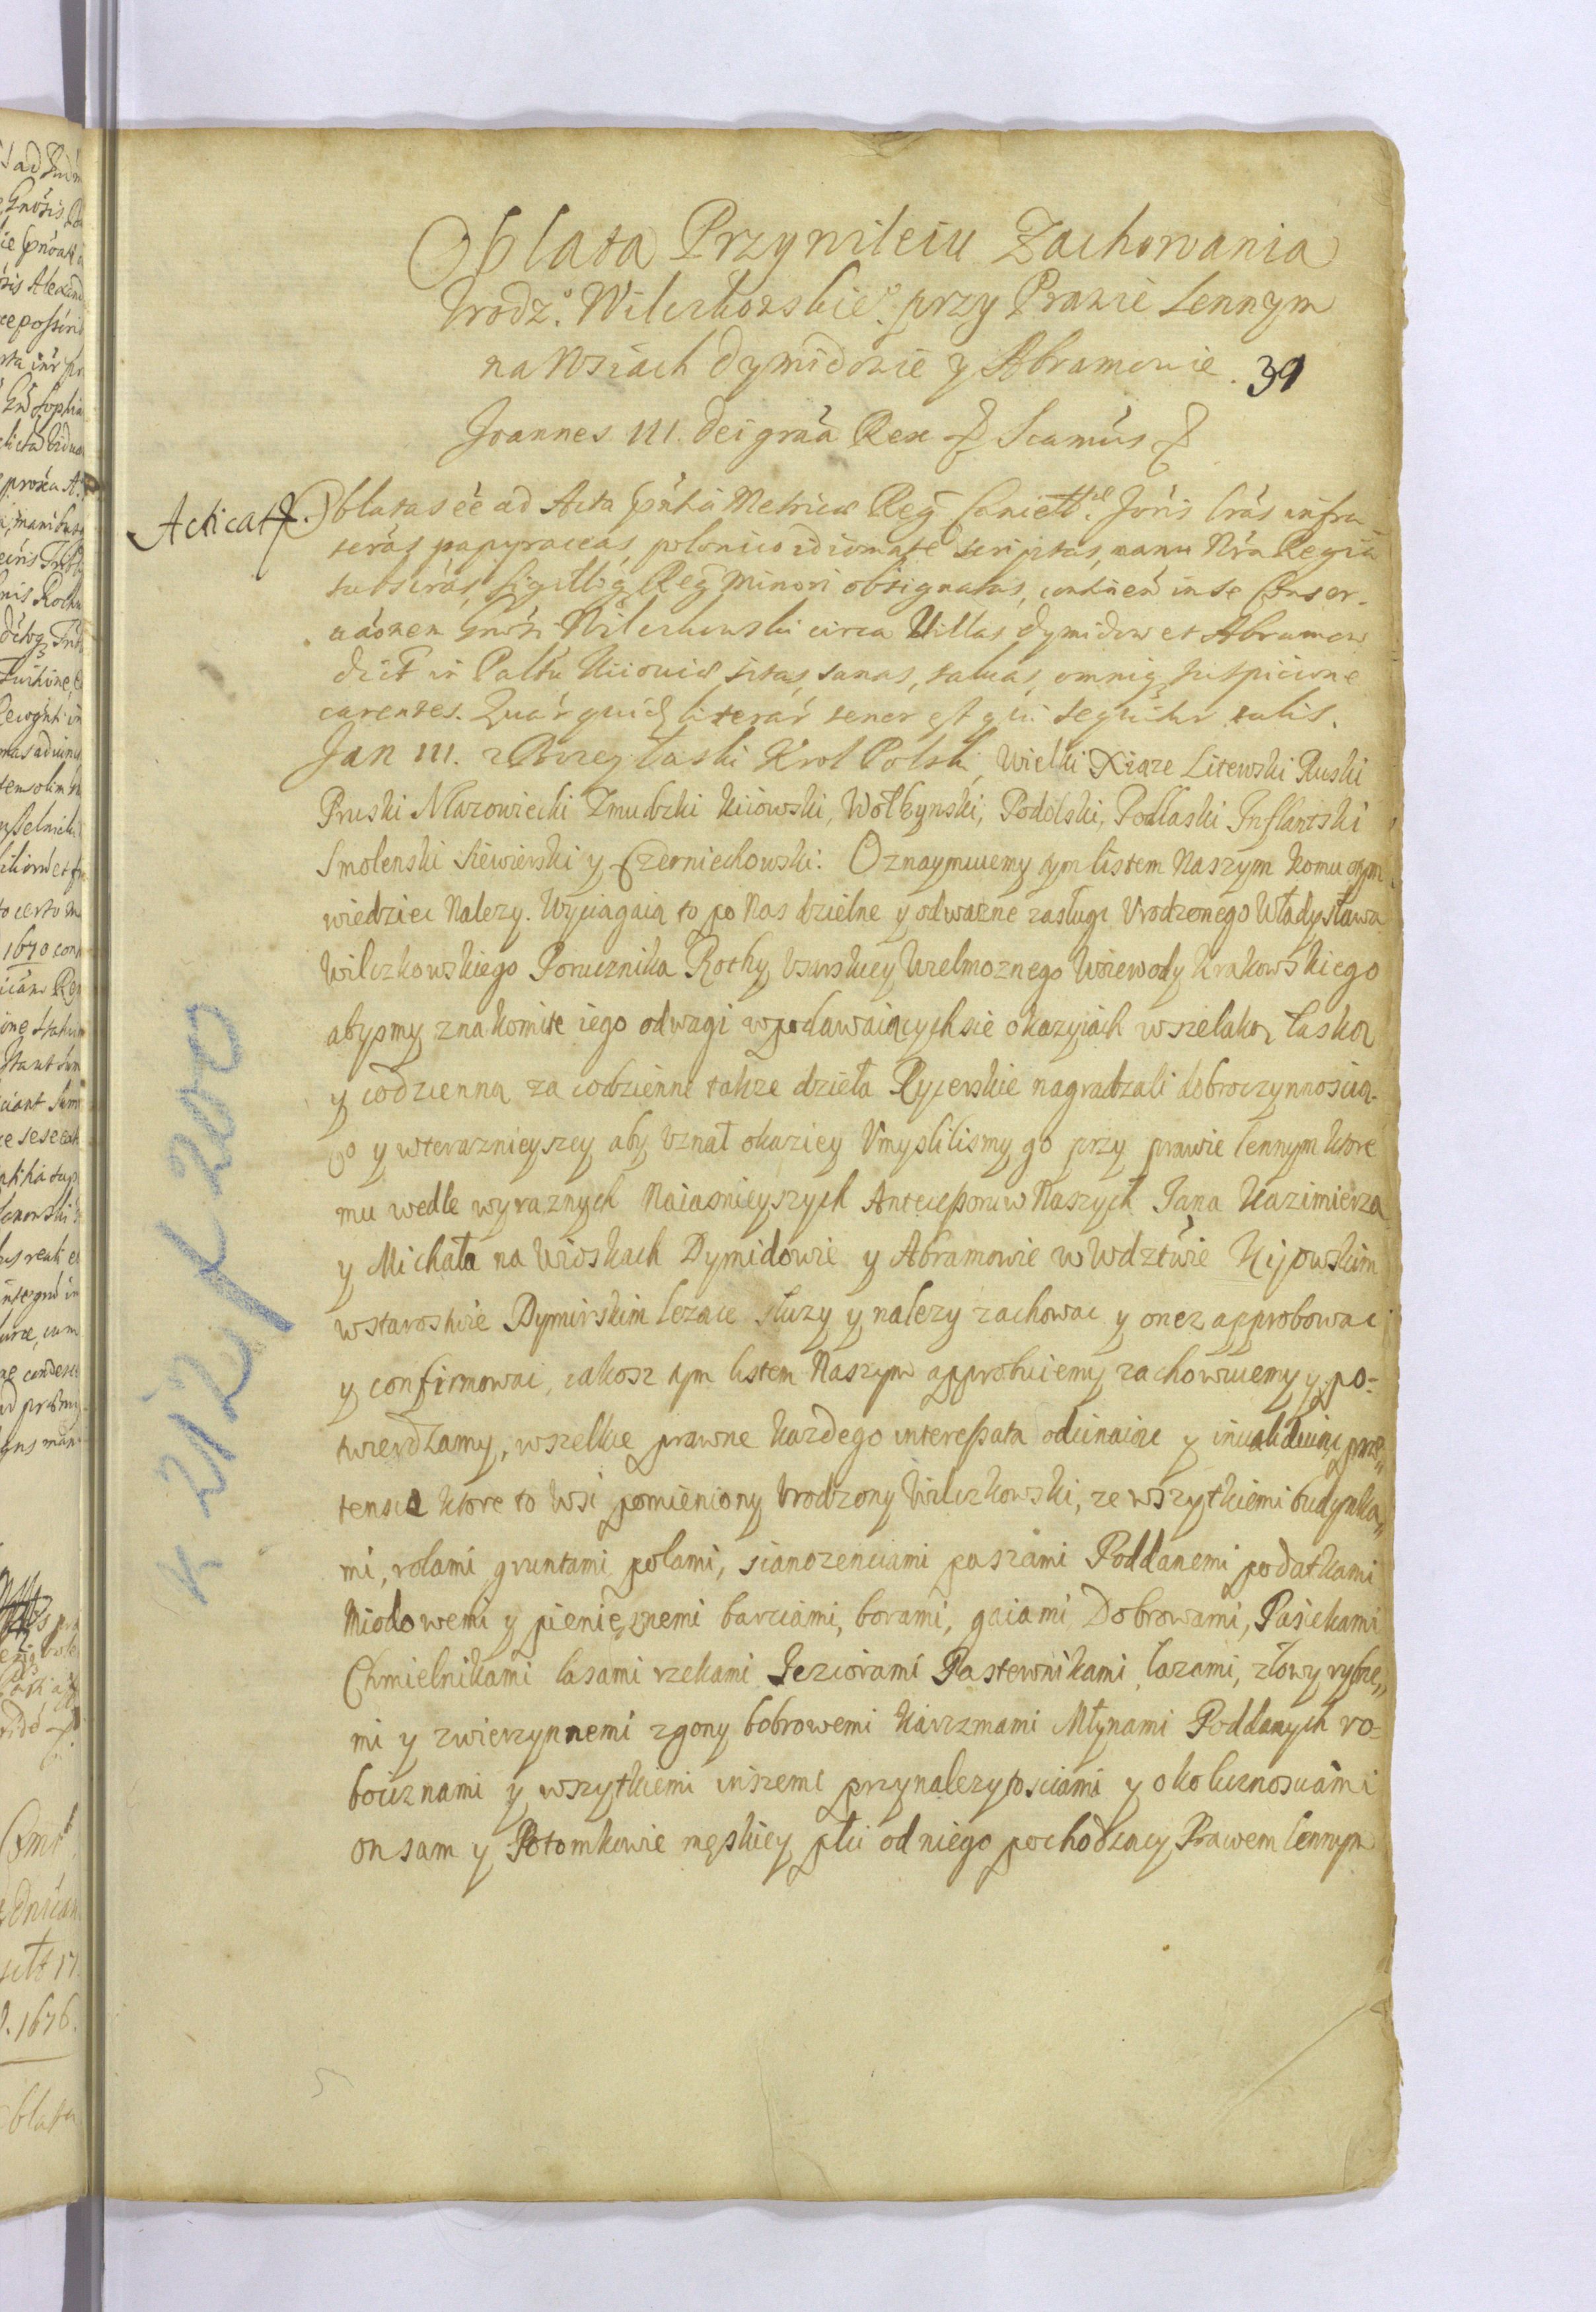 Oblata Przywileiu Zachowania
Vrodz.º Wilczkowskieº. przy Prawie Lennym
na Wsiach Dymidowie y Abramowie.
39
Joannes III. Dei grãa Rex Scamus
Acticat.
Oblatas eẽ ad Acta pñtia Metrices Reg Joris lrãs infra
scrãs papyraceas, polonico idiomate scriptas, manu Nrã Regia
subscrãs, Sigilloq Reg Minori obsignatas, continen in se Conser-
uaõnen Gnõsi Wilczkowski circa Villas Dymidow et Abramow
dict in Paltu Kiiouiae sitas, sanas, saluas, omniq suspicione
carentes. Quar quid literar tenor est qui sequitur talis.
Jan III. z Bozey łaski Krol Polski, Wielki Xiąze Litewski Ruski
Pruski Mazowiecki Zmudzki Kiiowski, Wołhynski, Podolski, Podlaski Inflantski
Smolenski Siewierski y Czerniechowski. Oznaymuiemy tym listem Naszym komu otym
wiedziec Nalezy. Wyciagaią to po Nas dzielne y odwazne zasługi Vrodzonego Władysława
Wilczkowskiego Porucznika Rothy Vsarskiey Wielmoznego Woiewody Krakowskiego
abysmy znakomite iego odwagi w podawaiących sie okazyiach wszelaką łaską
y codzienną za codzienne takze dzieła Rycerskie nagradzali dobroczynnoscią.
Co y wteraznieyszey aby vznał okaziey Vmyslilismy go przy prawie lennym ktore
mu wedle wyraznych Naiasnieyszych Antecessorow Naszych Jana Kazimierza
y Michała na Wioskach Dymidowie y Abramowie w Wdztwie Kijowskim
wstarostwie Dymirskim lezące słuzy y nalezy zachowac y onez approbowac
y confirmowac, iakosz tym listem Naszym approbuiemy zachowuiemy y po-
twierdzamy, wszelkie prawne kazdego interessata odcinaiąc y inualiduiąc prae„
tensie ktore to Wsi pomieniony Vrodzony Wilczkowski, ze wszytkiemi budynka„
mi, rolami gruntami polami, sianozenciami paszami Poddanemi podatkami
Miodowemi y pienięznemi barciami, borami, gaiami Dobrowami, Pasiekami
Chmielnikami lasami rzekami Jeziorami Pastewnikami, łazami, złowy rybne„
mi y zwierzynnemi zgony bobrowemi karczmami Młynami Poddanych ro-
bociznami y wszytkiemi inszemi przynalezytosciami y okolicznosciami
on sam y Potomkowie męskiey płci od niego pochodzący Prawem lennym
K 212 / K 200